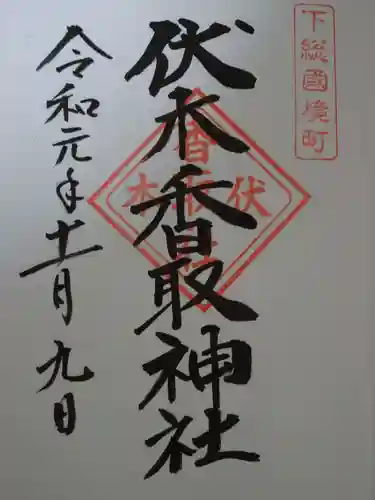 下総國境町
伏木香取神社
伏木
香取
社
令和元年十一月九日